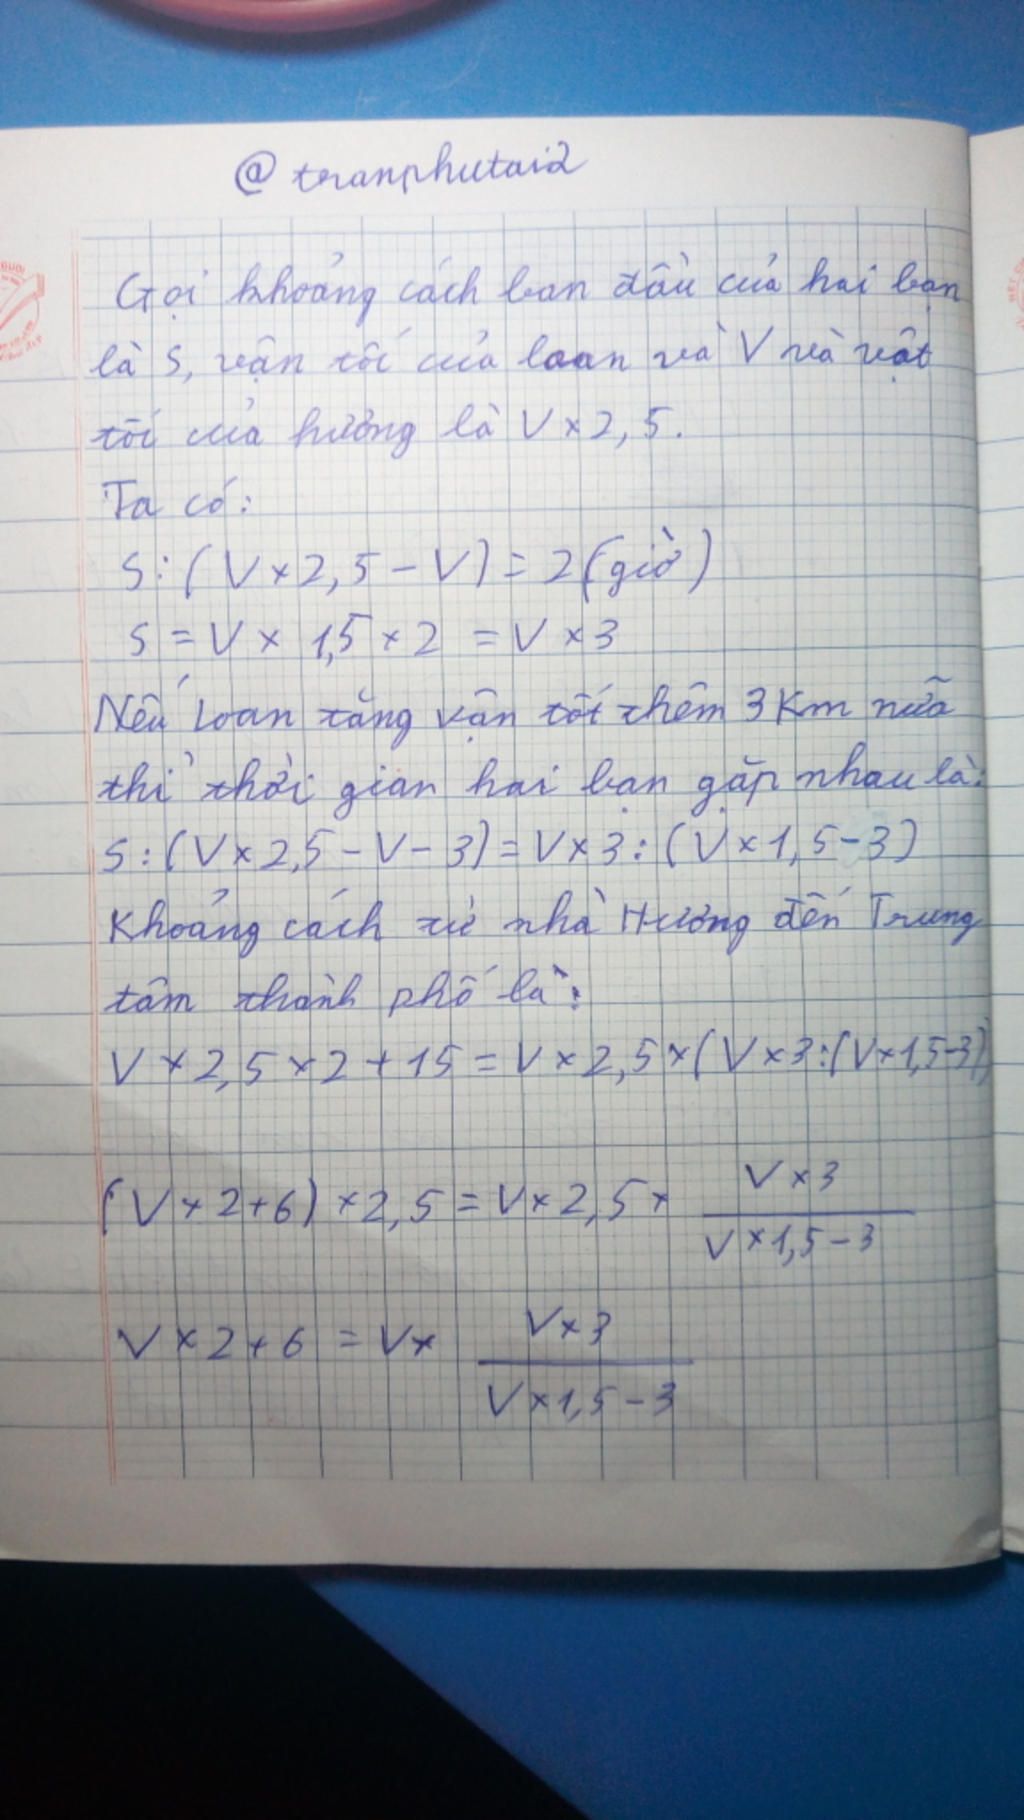 @tranphutai2
Gọi khoảng cách ban đầu của hai bạn
là S, vận tốc của loan và V và vật
tốc của hương là V × 2,5.
Ta có:
S : (V × 2,5 - V) = 2 (giờ)
S = V × 1,5 × 2 = V × 3
Nếu Loan tăng vận tốt thêm 3 Km nữa
thì thời gian hai bạn gặp nhau là:
S : (V × 2,5 - V - 3) = V × 3 : (V × 1,5 - 3)
Khoảng cách từ nhà Hương đến Trung
tâm thành phố là:
V × 2,5 × 2 + 15 = V × 2,5 × (V × 3 : (V × 1,5 - 3)
(V × 2 + 6) × 2,5 = V × 2,5 × V × 3 / V × 1,5 - 3
V × 2 + 6 = V × V × 3 / V × 1,5 - 3